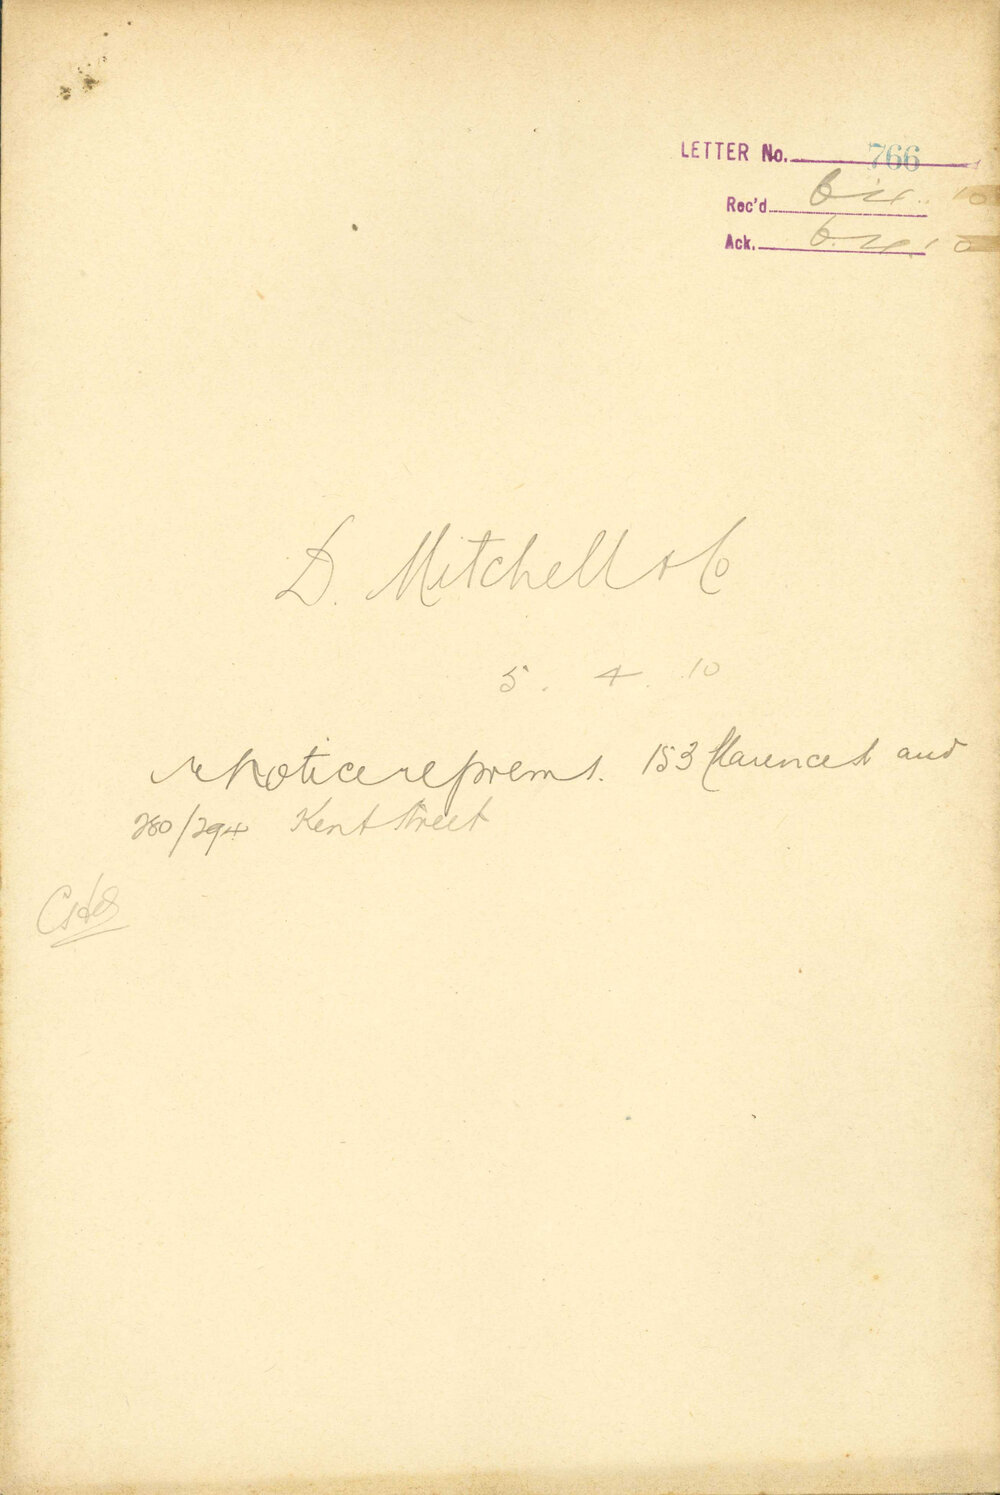 LETTER No. 766
Rec'd 6.4.10
Ack. 6.4.10
D. Mitchell & Co
5. 4. 10
re Notice re prems. 153 Clarence St and
280/294 Kent Street